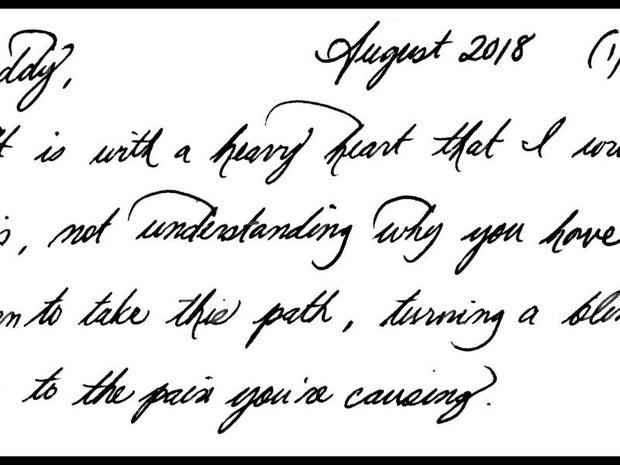 ddy, August 2018 (1)
It is with a heavy heart that I wri
s, not understanding why you have
en to take this path, turning a blin
to the pain you're causing.